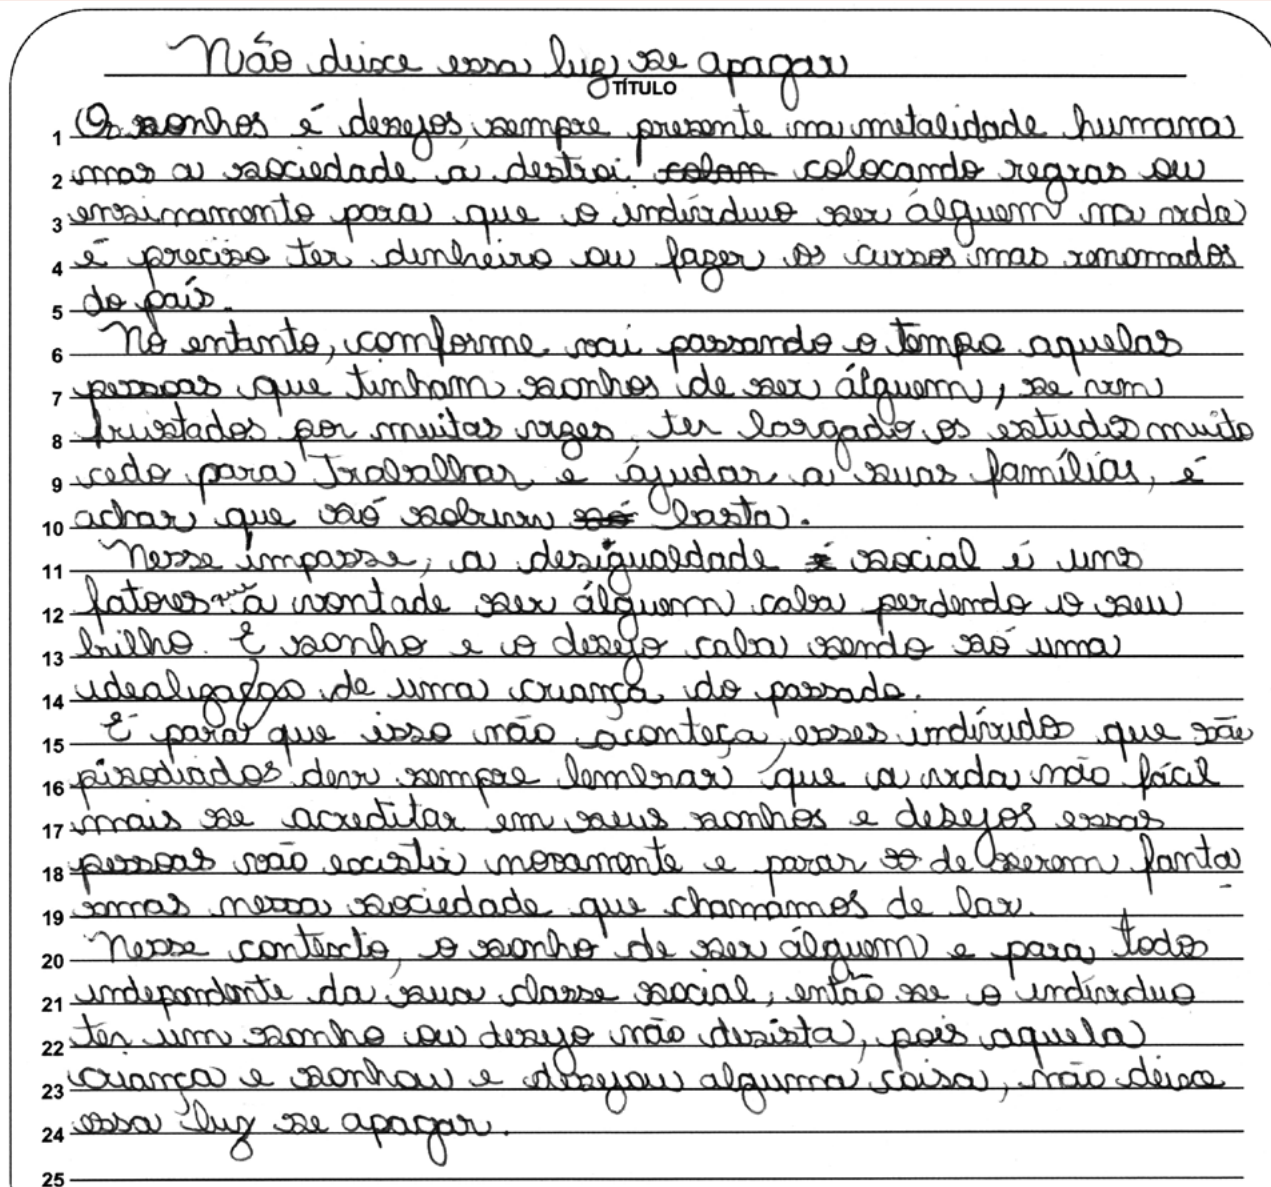 Não deixe essa luz se apagar
TÍTULO
1 Os sonhos é desejos, sempre presente na metalidade humana
2 mas a sociedade a destroi colocando regras ou
3 ensinamento para que o indivíduo ser álguem na vida
4 é preciso ter dinheiro ou fazer os cursos mas renomados
5 do país.
6 No entanto, comforme vai passando o tempo aquelas
7 pessoas que tinham sonhos de ser álguem, se vem
8 frustados por muitas vezes, ter largado os estudos muito
9 cedo para trabalhar e ajudar a suas famílias, é
10 achar que só sobreviver basta.
11 Nesse impasse, a desigualdade social é uns
12 fatores que a vontade ser álguem caba perdendo o seu
13 brilho. E sonho e o desejo caba sendo só uma
14 idealização de uma criança do passado.
15 E para que isso não aconteça, esses indivídos que são
16 pisodiados devr sempre lembrar que a vida não fácil
17 mais se acreditar em seus sonhos e desejos essas
18 pessoas vão existir novamente e parar de serem fanta
19 smas nessa sociedade que chamamos de lar.
20 Nesse contexto, o sonho de ser álguem e para todos
21 independente da sua classe social, então se o indivíduo
22 ter um sonho ou desejo não desista, pois aquela
23 criança e sonhou e desejou alguma coisa, não deixe
24 essa luz se apagar.
25